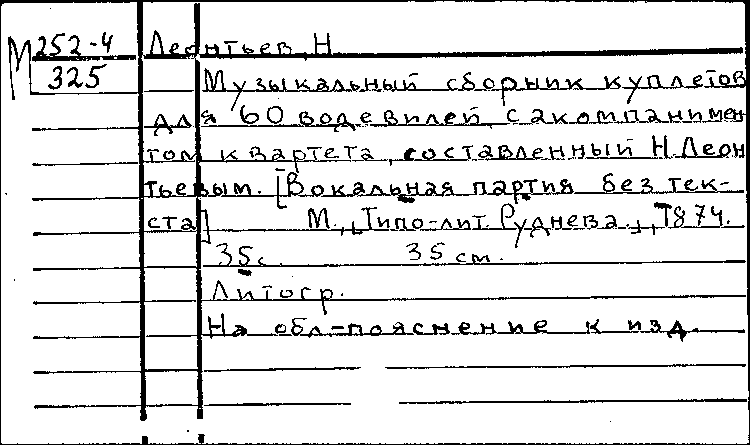 М 252-4 Леонтьев, Н.
325 Музыкальный сборник куплетов
для 60 водевилей, с акомпанимен
том квартета, составленный Н. Леон
тьевым. [Вокальная партия без тек-
ста] М., "Типо-лит. Руднева", 1874.
35 с. 35 см.
Литогр.
На обл-пояснение к изд.